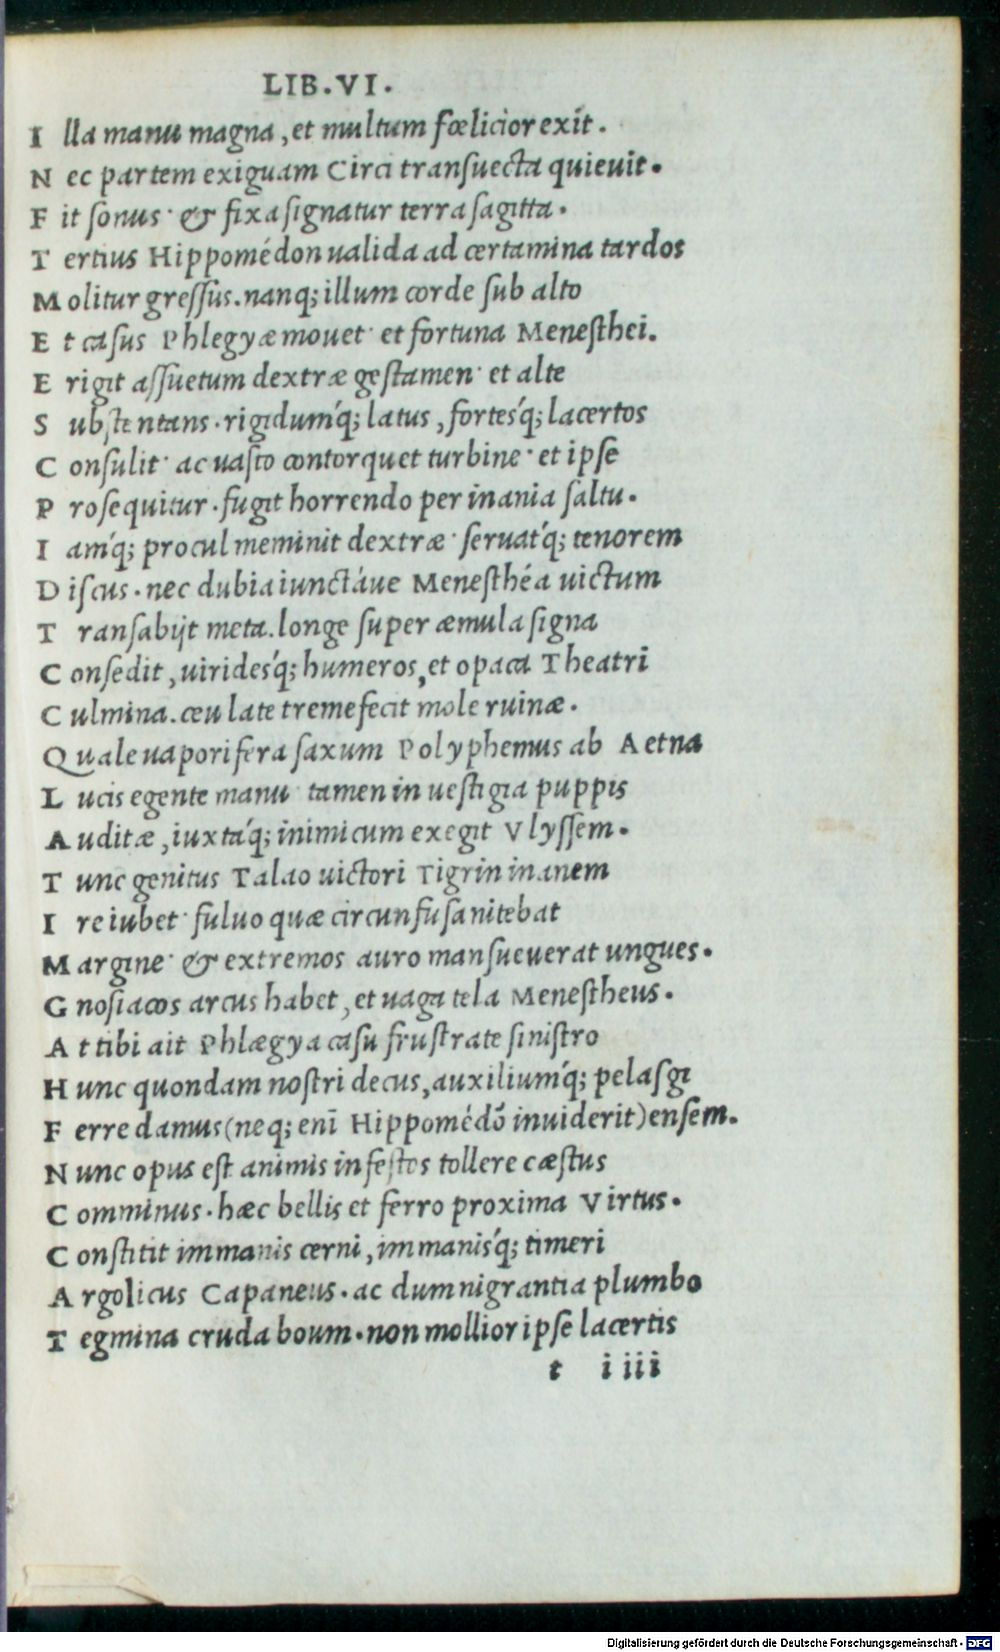 LIB.VI.
I lla manu magna, et multum fœlicior exit.
N ec partem exiguam Circi transuecta quieuit.
F it sonus· & fixa signatur terra sagitta.
T ertius Hippomédon ualida ad certamina tardos
M olitur gressus. nanq; illum corde sub alto
E t casus Phlegyæ mouet· et fortuna Menesthei.
E rigit assuetum dextræ gestamen· et alte
S ubstentans. rigidumq́; latus, fortesq́; lacertos
C onsulit· ac uasto contorquet turbine· et ipse
P rosequitur. fugit horrendo per inania saltu.
I amq́; procul meminit dextræ· seruatq́; tenorem
D iscus. nec dubia iunctáue Menesthéa uictum
T ransabijt meta. longe super æmula signa
C onsedit, uiridesq́; humeros, et opaca Theatri
C ulmina. ceu late tremefecit mole ruinæ.
Q uale uaporifera saxum Polyphemus ab Aetna
L ucis egente manu· tamen in uestigia puppis
A uditæ, iuxtaq́; inimicum exegit Vlyssem.
T unc genitus Talao uictori Tigrin inanem
I re iubet· fuluo quæ circunfusa nitebat
M argine· & extremos auro mansueuerat ungues.
G nosiacos arcus habet, et uaga tela Menestheus.
A t tibi ait Phlægya casu frustrate sinistro
H unc quondam nostri decus, auxiliumq́; pelasgi
F erre damus (neq; enī Hippomédō inuiderit) ensem.
N unc opus est animis infestos tollere cæstus
C omminus. hæc bellis et ferro proxima Virtus.
C onstitit immanis cerni, immanisq́; timeri
A rgolicus Capaneus. ac dum nigrantia plumbo
T egmina cruda boum. non mollior ipse lacertis
t iiii
Digitalisierung gefördert durch die Deutsche Forschungsgemeinschaft - DFG